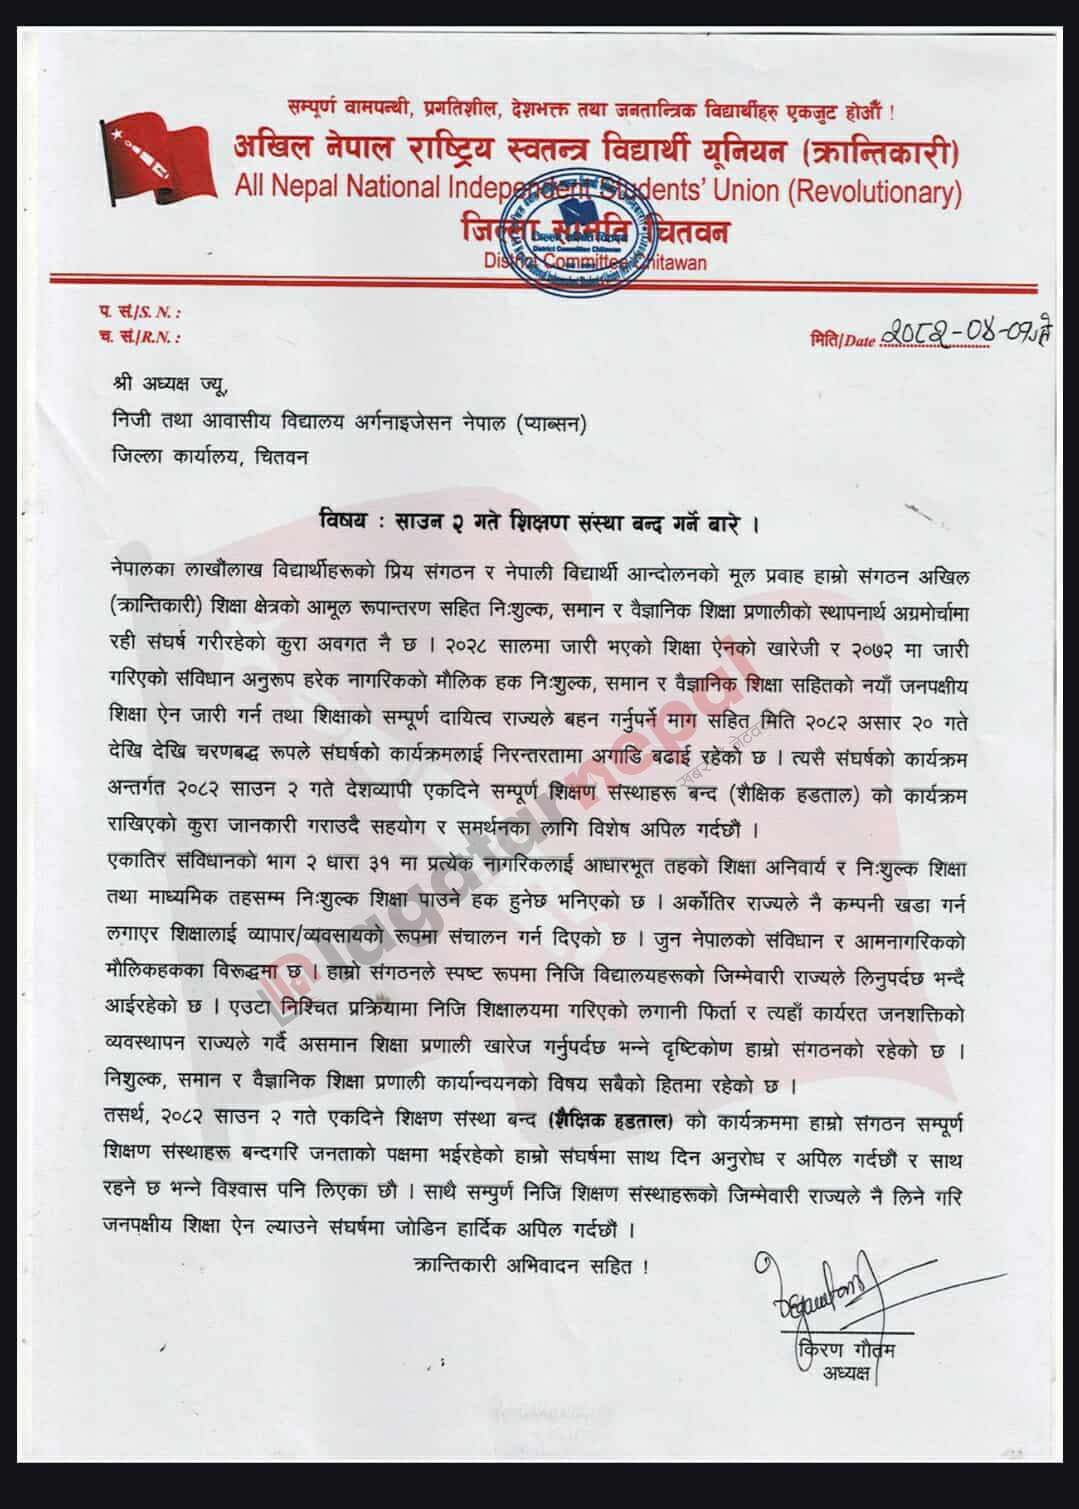 सम्पूर्ण वामपन्थी, प्रगतिशील, देशभक्त तथा जनतान्त्रिक विद्यार्थीहरु एकजुट होऔं !
अखिल नेपाल राष्ट्रिय स्वतन्त्र विद्यार्थी यूनियन (क्रान्तिकारी)
All Nepal National Independent Students' Union (Revolutionary)
जिल्ला समिति चितवन
District Committee Chitawan
प. सं./S. N. :
च. सं./R.N. :
मिति/Date २०८२-०४-०१ गते
श्री अध्यक्ष ज्यू,
निजी तथा आवासीय विद्यालय अर्गनाइजेसन नेपाल (प्याब्सन)
जिल्ला कार्यालय, चितवन
विषय : साउन २ गते शिक्षण संस्था बन्द गर्ने बारे ।
नेपालका लाखौलाख विद्यार्थीहरूको प्रिय संगठन र नेपाली विद्यार्थी आन्दोलनको मूल प्रवाह हाम्रो संगठन अखिल
(क्रान्तिकारी) शिक्षा क्षेत्रको आमूल रूपान्तरण सहित निःशुल्क, समान र वैज्ञानिक शिक्षा प्रणालीको स्थापनार्थ अग्रमोर्चामा
रही संघर्ष गरीरहेको कुरा अवगत नै छ । २०२८ सालमा जारी भएको शिक्षा ऐनको खारेजी र २०७२ मा जारी
गरिएको संविधान अनुरूप हरेक नागरिकको मौलिक हक निःशुल्क, समान र वैज्ञानिक शिक्षा सहितको नयाँ जनपक्षीय
शिक्षा ऐन जारी गर्न तथा शिक्षाको सम्पूर्ण दायित्व राज्यले बहन गर्नुपर्ने माग सहित मिति २०८२ असार २० गते
देखि देखि चरणबद्ध रूपले संघर्षको कार्यक्रमलाई निरन्तरतामा अगाडि बढाई रहेको छ । त्यसै संघर्षको कार्यक्रम
अन्तर्गत २०८२ साउन २ गते देशव्यापी एकदिने सम्पूर्ण शिक्षण संस्थाहरू बन्द (शैक्षिक हडताल) को कार्यक्रम
राखिएको कुरा जानकारी गराउदै सहयोग र समर्थनका लागि विशेष अपिल गर्दछौं ।
एकातिर संविधानको भाग २ धारा ३१ मा प्रत्येक नागरिकलाई आधारभूत तहको शिक्षा अनिवार्य र निःशुल्क शिक्षा
तथा माध्यमिक तहसम्म निःशुल्क शिक्षा पाउने हक हुनेछ भनिएको छ । अर्कोतिर राज्यले नै कम्पनी खडा गर्न
लगाएर शिक्षालाई व्यापार/व्यवसायको रूपमा संचालन गर्न दिएको छ । जुन नेपालको संविधान र आमनागरिकको
मौलिकहकका विरूद्धमा छ । हाम्रो संगठनले स्पष्ट रूपमा निजि विद्यालयहरूको जिम्मेवारी राज्यले लिनुपर्दछ भन्दै
आईरहेको छ । एउटा निश्चित प्रक्रियामा निजि शिक्षालयमा गरिएको लगानी फिर्ता र त्यहाँ कार्यरत जनशक्तिको
व्यवस्थापन राज्यले गर्दै असमान शिक्षा प्रणाली खारेज गर्नुपर्दछ भन्ने दृष्टिकोण हाम्रो संगठनको रहेको छ ।
निशुल्क, समान र वैज्ञानिक शिक्षा प्रणाली कार्यान्वयनको विषय सबैको हितमा रहेको छ ।
तसर्थ, २०८२ साउन २ गते एकदिने शिक्षण संस्था बन्द (शैक्षिक हडताल) को कार्यक्रममा हाम्रो संगठन सम्पूर्ण
शिक्षण संस्थाहरू बन्दगरि जनताको पक्षमा भईरहेको हाम्रो संघर्षमा साथ दिन अनुरोध र अपिल गर्दछौं र साथ
रहने छ भन्ने विश्वास पनि लिएका छौ । साथै सम्पुर्ण निजि शिक्षण संस्थाहरूको जिम्मेवारी राज्यले नै लिने गरि
जनपक्षीय शिक्षा ऐन ल्याउने संघर्षमा जोडिन हार्दिक अपिल गर्दछौं ।
क्रान्तिकारी अभिवादन सहित !
किरण गौतम
अध्यक्ष
jagatarnepal